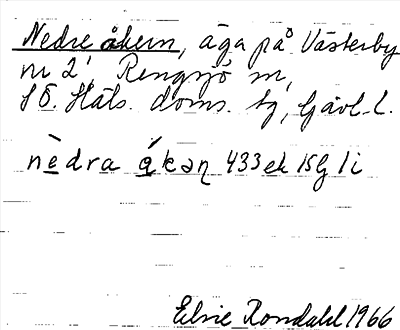 Nedre åkern, äga på Västerby
nr 2, Rengsjö sn,
SÖ. Häls. doms. tg, Gävl. l.
nèdra ákaɳ 433 ek 15G 1i
Elsie Rondahl 1966